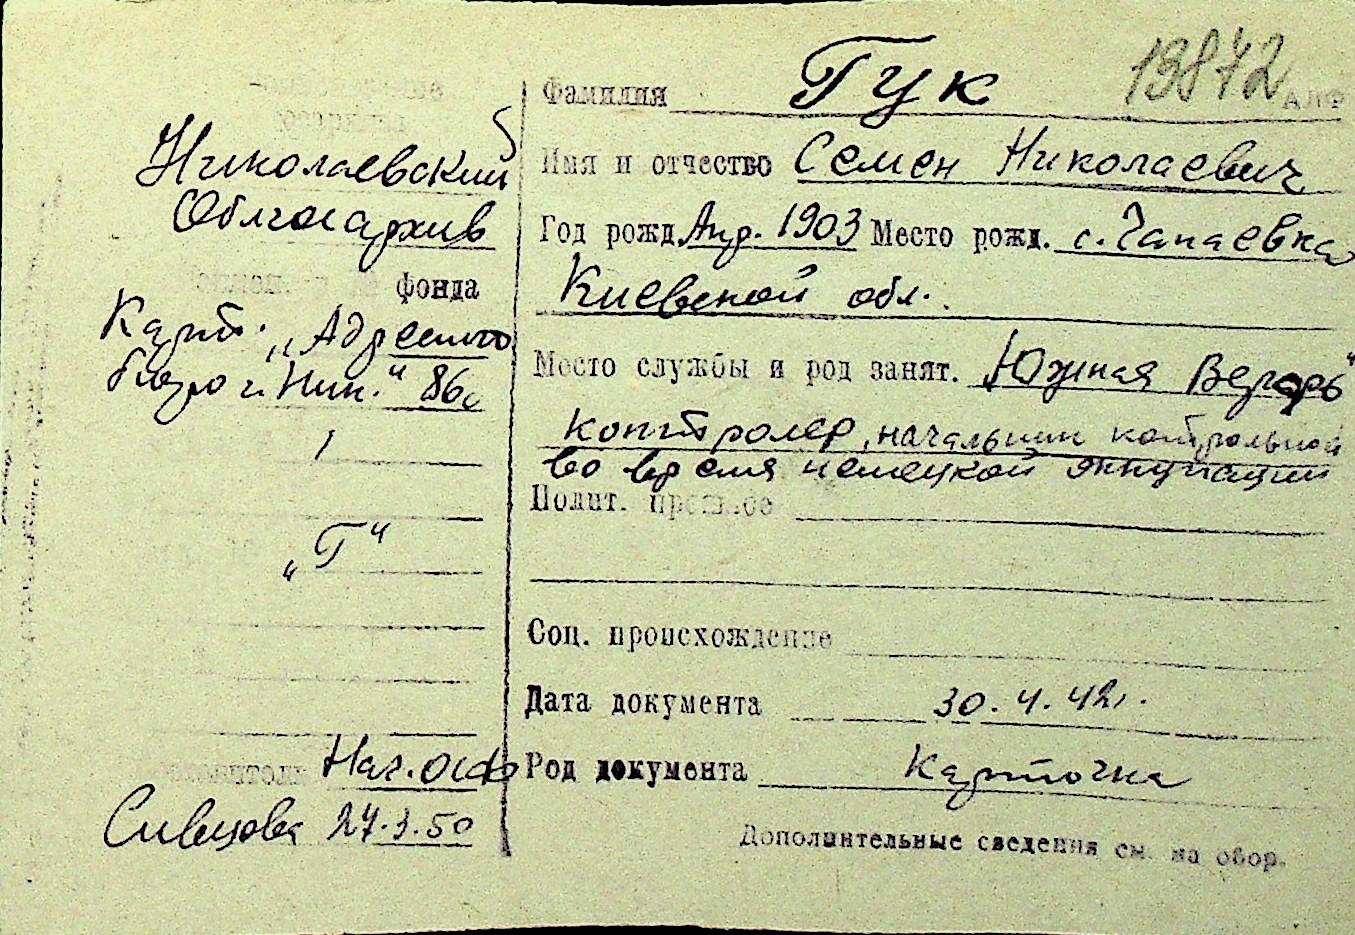 13872
АЛФ
Фамилия Гук
Имя и отчество Семен Николаевич
Год рожд. Апр. 1903 Место рожд. с. Чапаевка
Киевской обл.
Место службы и род занят. „Южная Верфь"
контролер, начальник контрольной
во время немецкой оккупации
Полит. прошлое
Соц. происхождение
Дата документа 30.4.42г.
Род документа Карточка
Дополнительные сведения см. на обор.
Николаевский
Облгосархив
фонда
Карт. „Адресного
бюро г. Ник." 86с
1
„Г"
Нач. ОСФ
Сивцова 27.3.50